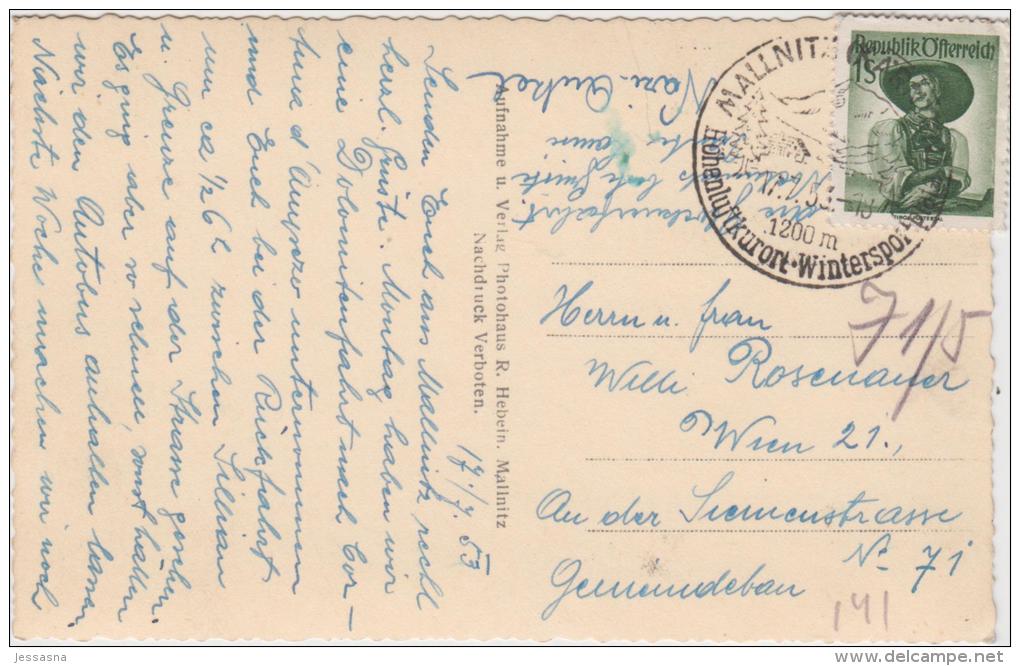 17./7. 53
Senden Euch aus Mallnitz recht
herzl. Grüße. Montag haben wir
eine Dolomitenfahrt nach Cor-
tina d'Ampezzo unternommen
und Euch bei der Rückfahrt
um ca ½ 6 h zwischen Sillian
u. Greinz auf der Strasse gesehen.
Es ging aber so schnell, sonst hätten
wir den Autobus anhalten lassen.
Nächste Woche machen wir noch
Aufnahme u. Verlag Photohaus R. Hebein, Mallnitz
Nachdruck Verboten.
Republik Österreich
1S
MALLNITZ
17.7.53
1200 m
Höhenluftkurort · Wintersport
71/5
Herrn u. Frau
Willi Rosenauer
Wien 21.,
An der Siemensstrasse
No 71
Gemeindebau
141
jessasna
delcampe.net